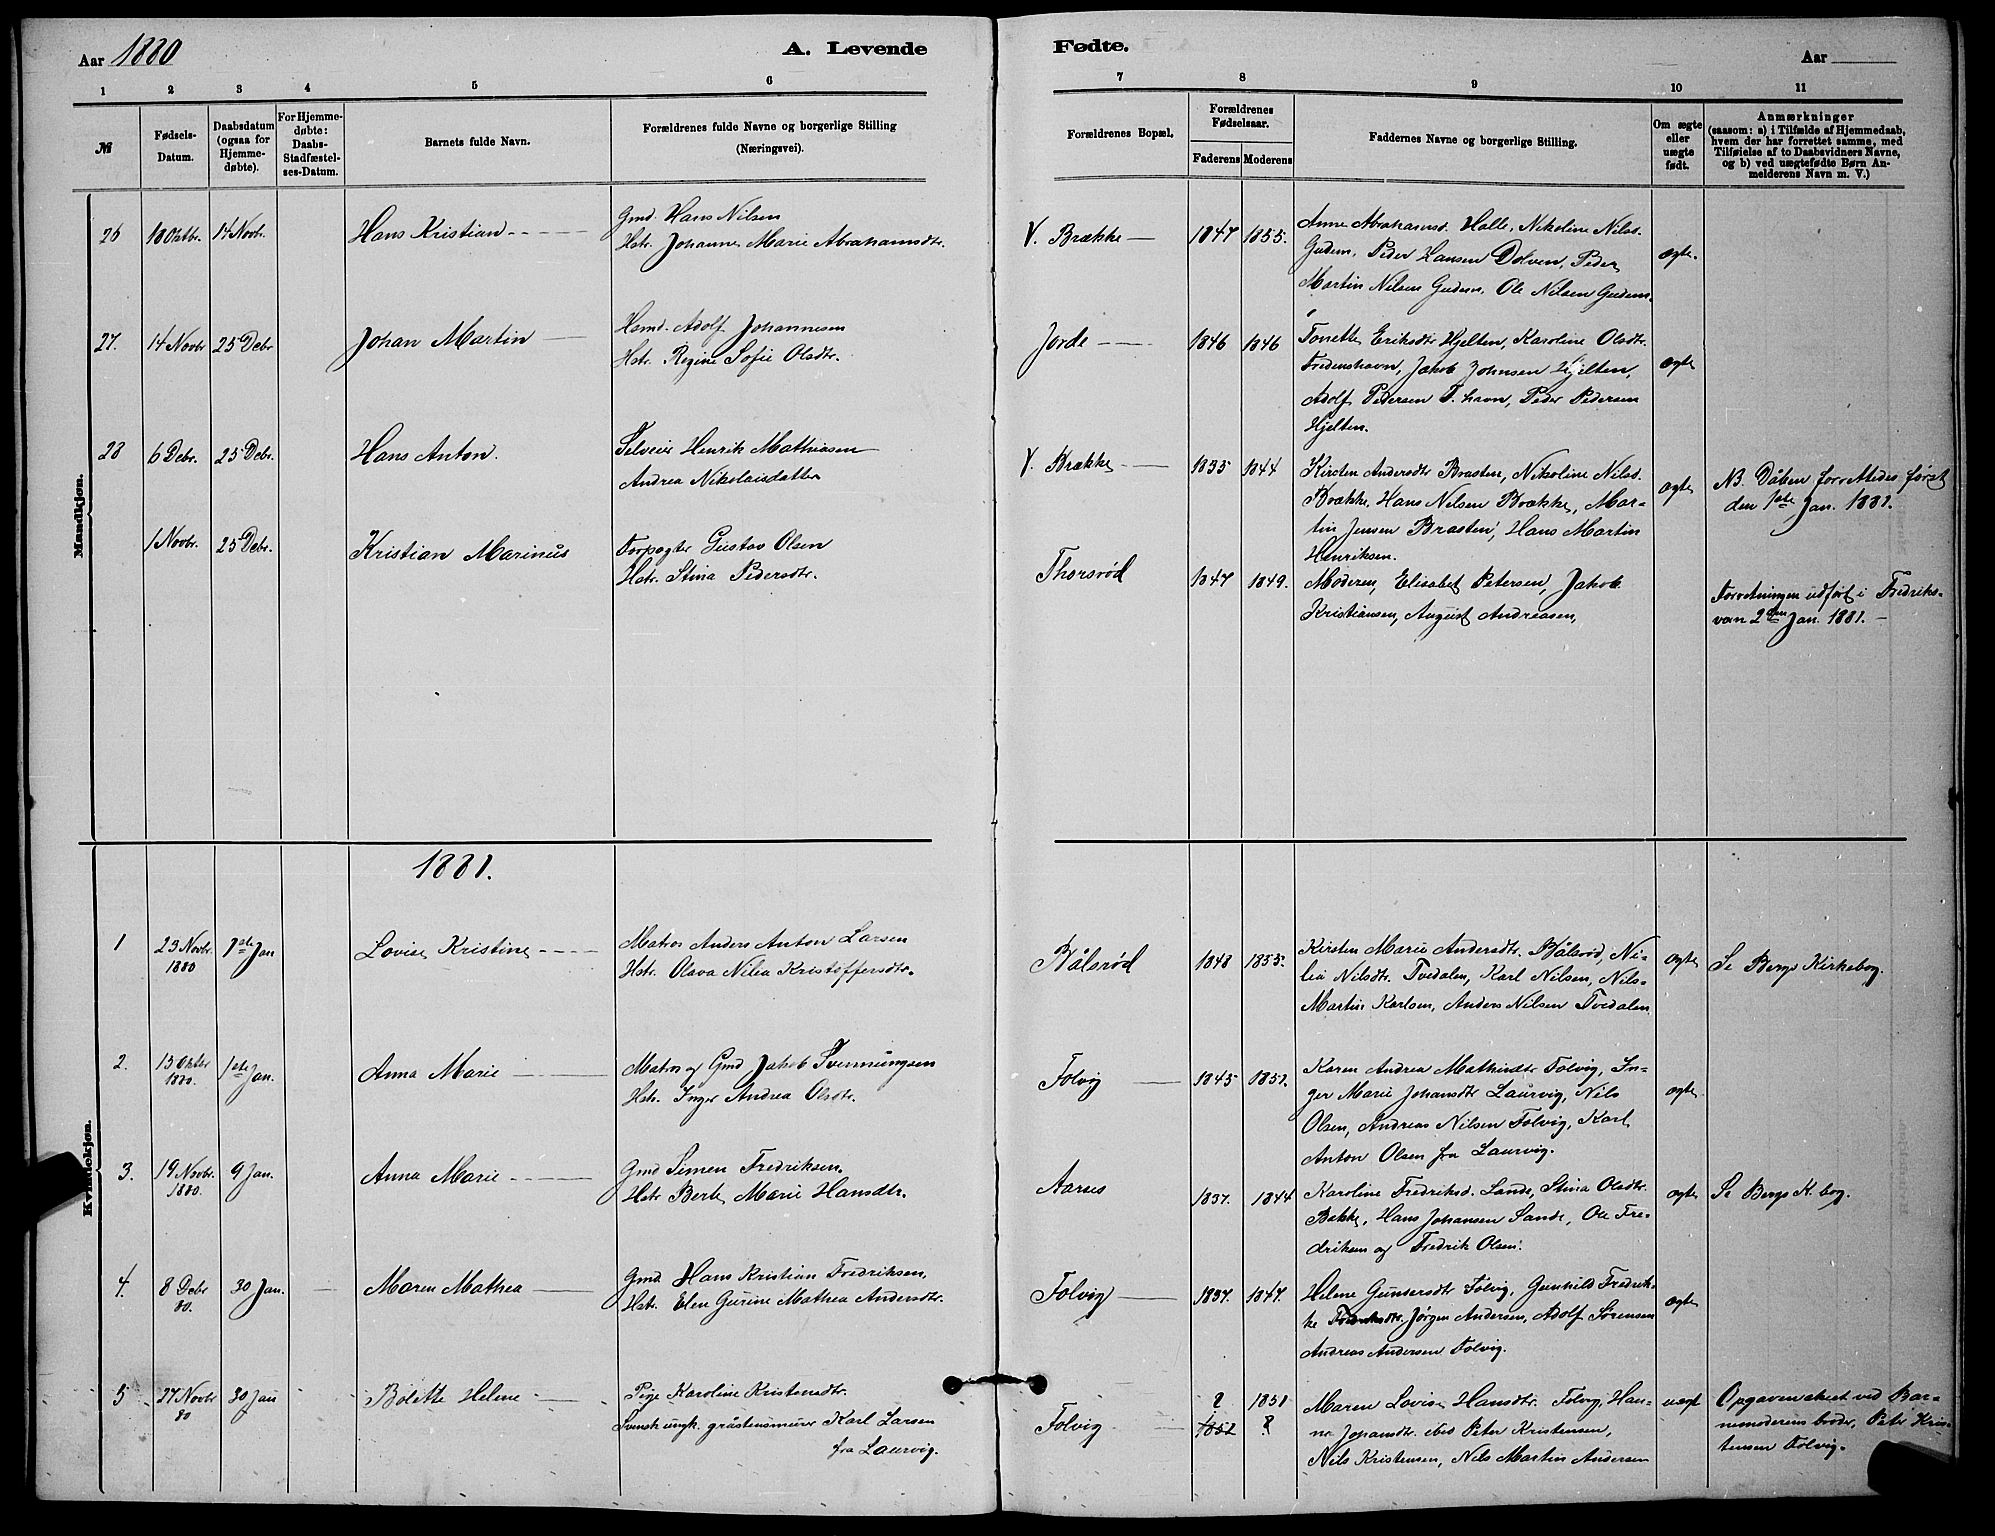 Aar 1880
A. Levende
Fødte.
Aar
1 2 3 4 5 6 7 8 9 10 11
№
Fødsels-
Datum.
Daabsdatum
(ogsaa for
Hjemme-
døbte).
For Hjemme-
døbte:
Daabs-
Stadfæstel-
ses-Datum.
Barnets fulde Navn.
Forældrenes fulde Navne og borgerlige Stilling
(Næringsvei).
Forældrenes Bopæl.
Forældrenes
Fødselsaar.
Faderens Moderens
Faddernes Navne og borgerlige Stilling.
Om ægte
eller
uægte
født.
Anmærkninger
(saasom: a) i Tilfælde af Hjemmedaab,
hvem der har forrettet samme, med
Tilføielse af to Daabsvidners Navne,
og b) ved uægtefødte Børn An-
melderens Navn m. V.)
Mandkjøn.
26 18 Oktbr. 14 Novbr. Hans Kristian
Gmd. Hans Nilsen
Hstr. Johanne Marie Abrahamsdtr.
V. Brække 1847 1855.
Anne Abrahamsd. Halle, Nikoline Nilsd.
Gudem, Peder Hansen Dolven, Peder
Martin Nilsen Gudem, Ole Nilsen Gudem.
ægte.
27. 14 Novbr 25 Debr Johan Martin
Hsmd. Adolf Johannesen
Hstr. Regine Sofie Olsdtr.
Jorde 1846 1846
Tonette Eriksdtr Hjelten, Karoline Olsdtr.
Fredenshavn, Jakob Johnsen Hjelten,
Adolf Pedersen F.havn, Peder Pedersen
Hjelten.
ægte
28 6 Debr. 25 Debr. Hans Anton.
Selveier Henrik Mathiasen
Andrea Nikolaisdatter
V. Brække 1835 1844
Kirsten Andersdtr Brasten, Nikoline Nilsd.
Brække, Hans Nilsen Brække, Mar-
tin Jensen Brasten, Hans Martin
Henriksen.
ægte
NB. Dåben forrettedes først
den 1ste Jan. 1881.
1 Novbr. 25 Debr. Kristian Marinus
Forpagter Gustav Olsen
Hstr. Stina Pedersdtr.
Thorsrød 1847 1849.
Moderen, Elisabet Petersen, Jakob
Kristiansen, August Andreasen,
Forretningen udført i Fredriks-
værn 2den Jan. 1881.
Kvindekjøn.
1881.
1 23 Novbr. 1880 1ste Jan Lovise Kristine
Matros Anders Anton Larsen
Hstr. Olava Nilia Kristoffersdtr.
Bålsrød 1848 1855.
Kirsten Marie Andersdtr. Bålsrød, Ni-
lia Nilsdtr. Tvedalen, Karl Nilsen, Nils
Martin Karlsen, Anders Nilsen Tvedalen
ægte
Se Bergs Kirkebog.
2. 15 Oktbr 1880. 1ste Jan. Anna Marie
Matros og Gmd Jakob Svennungsen
Hstr. Inger Andrea Olsdtr.
Folvig 1845 1851.
Karen Andrea Mathisdtr Folvig, In-
ger Marie Johansdtr Laurvig, Nils
Olsen, Andreas Nilsen Folvig, Karl
Anton Olsen fra Laurvig.
ægte
3. 19 Novbr. 1880. 9 Jan. Anna Marie
Gmd Simen Fredriksen.
Hstr Berte Marie Hansdtr.
Aarnes 1837. 1844
Karoline Fredriksd. Sande, Stina Olsdtr.
Bakke, Hans Johansen Sande, Ole Fre-
driksen og Fredrik Olsen.
ægte
Se Bergs K.bog.
4. 8 Debr 80. 30 Jan. Maren Mathea
Gmd. Hans Kristian Fredriksen,
Hstr. Elen Gurine Mathea Andersdtr.
Folvig 1837. 1847.
Helene Guntersdtr Folvig, Gunhild Fredrik-
ke Fredriksdtr. Jørgen Andersen, Adolf Sørensen
Andreas Andersen Folvig.
ægte
5 27 Novbr 80 30 Jan Bolette Helene
Pige Karoline Kristensdtr.
Svensk ungk. gråstensmurer Karl Larsen
fra Laurvig.
Folvig ? 1852 1851 ?
Maren Lovise Hansdtr. Folvig, Han-
na Johansdtr. ibid Peter Kristensen,
Nils Kristensen, Nils Martin Andersen
uægt
Opgaven skeet ved Bar-
nemoderens broder, Peter Kris-
tensen Folvig.